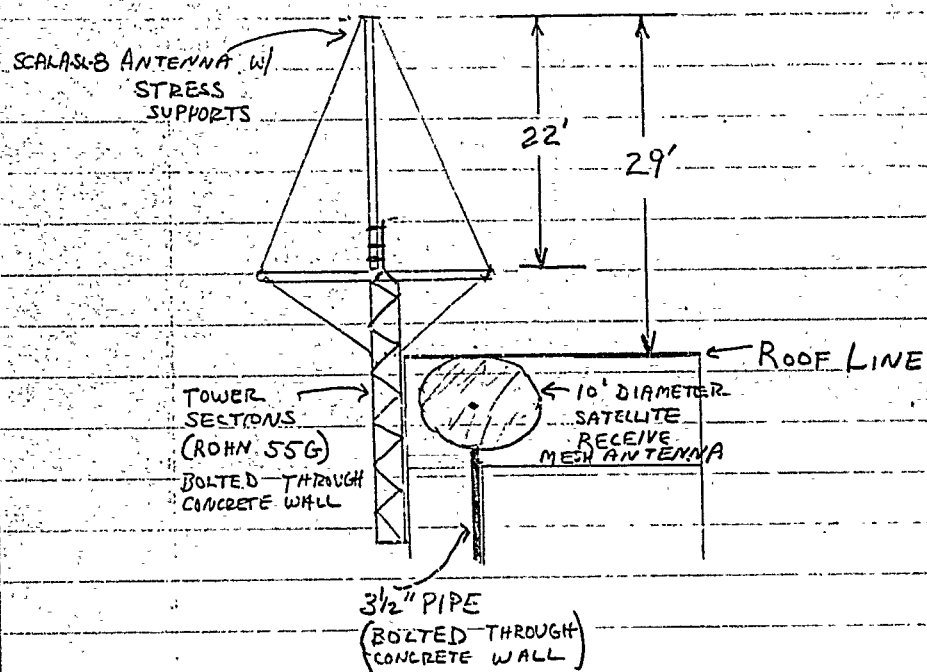 SCALA SL-8 ANTENNA W/
STRESS
SUPPORTS
22'
29'
ROOF LINE
TOWER
SECTIONS
(ROHN 55G)
BOLTED THROUGH
CONCRETE WALL
10' DIAMETER
SATELLITE
RECEIVE
MESH ANTENNA
3½" PIPE
(BOLTED THROUGH
CONCRETE WALL)